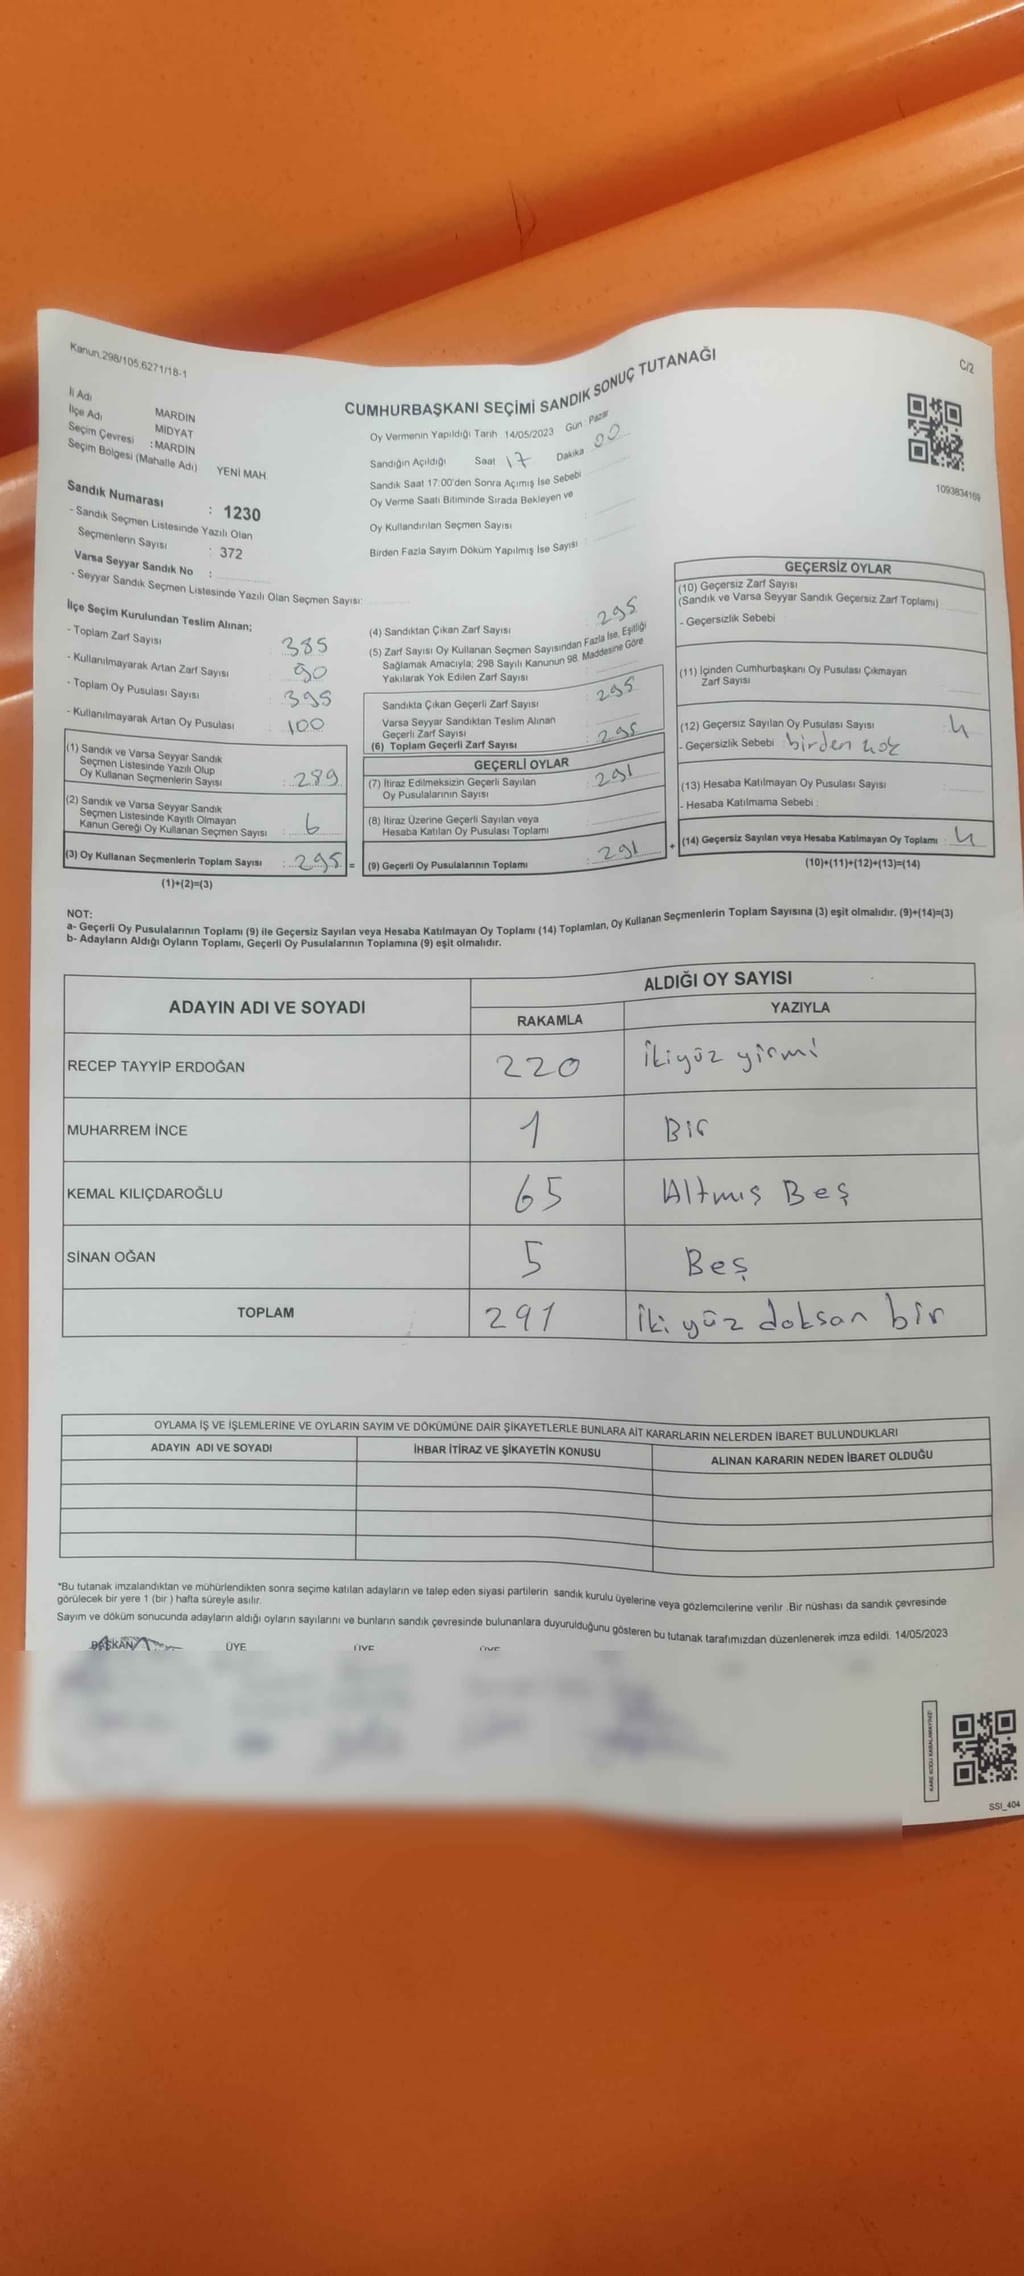 Kanun.298/105.6271/18-1
C/2
CUMHURBAŞKANI SEÇİMİ SANDIK SONUÇ TUTANAĞI
İl Adı MARDİN
İlçe Adı MİDYAT
Seçim Çevresi : MARDİN
Seçim Bölgesi (Mahalle Adı) YENİ MAH
Sandık Numarası : 1230
- Sandık Seçmen Listesinde Yazılı Olan
Seçmenlerin Sayısı : 372
Varsa Seyyar Sandık No :
- Seyyar Sandık Seçmen Listesinde Yazılı Olan Seçmen Sayısı:
Oy Vermenin Yapıldığı Tarih 14/05/2023 Gün : Pazar
Sandığın Açıldığı Saat 17 Dakika 00
Sandık Saat 17:00'den Sonra Açımış İse Sebebi
Oy Verme Saati Bitiminde Sırada Bekleyen ve
Oy Kullandırılan Seçmen Sayısı :
Birden Fazla Sayım Döküm Yapılmış İse Sayısı :
1093834169
İlçe Seçim Kurulundan Teslim Alınan;
- Toplam Zarf Sayısı 385
- Kullanılmayarak Artan Zarf Sayısı 90
- Toplam Oy Pusulası Sayısı 395
- Kullanılmayarak Artan Oy Pusulası 100
(1) Sandık ve Varsa Seyyar Sandık
Seçmen Listesinde Yazılı Olup
Oy Kullanan Seçmenlerin Sayısı : 289
(2) Sandık ve Varsa Seyyar Sandık
Seçmen Listesinde Kayıtlı Olmayan
Kanun Gereği Oy Kullanan Seçmen Sayısı : 6
(3) Oy Kullanan Seçmenlerin Toplam Sayısı : 295 =
(1)+(2)=(3)
(4) Sandıktan Çıkan Zarf Sayısı 295
(5) Zarf Sayısı Oy Kullanan Seçmen Sayısından Fazla İse, Eşitliği
Sağlamak Amacıyla; 298 Sayılı Kanunun 98. Maddesine Göre
Yakılarak Yok Edilen Zarf Sayısı
Sandıkta Çıkan Geçerli Zarf Sayısı : 295
Varsa Seyyar Sandıktan Teslim Alınan
Geçerli Zarf Sayısı
(6) Toplam Geçerli Zarf Sayısı : 295
GEÇERLİ OYLAR
(7) İtiraz Edilmeksizin Geçerli Sayılan
Oy Pusulalarının Sayısı : 291
(8) İtiraz Üzerine Geçerli Sayılan veya
Hesaba Katılan Oy Pusulası Toplamı :
(9) Geçerli Oy Pusulalarının Toplamı : 291 +
GEÇERSİZ OYLAR
(10) Geçersiz Zarf Sayısı
(Sandık ve Varsa Seyyar Sandık Geçersiz Zarf Toplamı)
- Geçersizlik Sebebi
(11) İçinden Cumhurbaşkanı Oy Pusulası Çıkmayan
Zarf Sayısı
(12) Geçersiz Sayılan Oy Pusulası Sayısı : 4
- Geçersizlik Sebebi : birden
(13) Hesaba Katılmayan Oy Pusulası Sayısı
- Hesaba Katılmama Sebebi :
(14) Geçersiz Sayılan veya Hesaba Katılmayan Oy Toplamı : 4
(10)+(11)+(12)+(13)=(14)
NOT:
a- Geçerli Oy Pusulalarının Toplamı (9) ile Geçersiz Sayılan veya Hesaba Katılmayan Oy Toplamı (14) Toplamları, Oy Kullanan Seçmenlerin Toplam Sayısına (3) eşit olmalıdır. (9)+(14)=(3)
b- Adayların Aldığı Oyların Toplamı, Geçerli Oy Pusulalarının Toplamına (9) eşit olmalıdır.
ADAYIN ADI VE SOYADI ALDIĞI OY SAYISI
RAKAMLA YAZIYLA
RECEP TAYYİP ERDOĞAN 220 iki yüz yirmi
MUHARREM İNCE 1 Bir
KEMAL KILIÇDAROĞLU 65 Altmış Beş
SİNAN OĞAN 5 Beş
TOPLAM 291 İki yüz doksan bir
OYLAMA İŞ VE İŞLEMLERİNE VE OYLARIN SAYIM VE DÖKÜMÜNE DAİR ŞİKAYETLERLE BUNLARA AİT KARARLARIN NELERDEN İBARET BULUNDUKLARI
ADAYIN ADI VE SOYADI İHBAR İTİRAZ VE ŞİKAYETİN KONUSU ALINAN KARARIN NEDEN İBARET OLDUĞU
*Bu tutanak imzalandıktan ve mühürlendikten sonra seçime katılan adayların ve talep eden siyasi partilerin sandık kurulu üyelerine veya gözlemcilerine verilir. Bir nüshası da sandık çevresinde
görülecek bir yere 1 (bir ) hafta süreyle asılır.
Sayım ve döküm sonucunda adayların aldığı oyların sayılarını ve bunların sandık çevresinde bulunanlara duyurulduğunu gösteren bu tutanak tarafımızdan düzenlenerek imza edildi. 14/05/2023
BAŞKAN ÜYE ÜYE ÜYE
KARE KODU KARALAMAYINIZ!
SSI_404